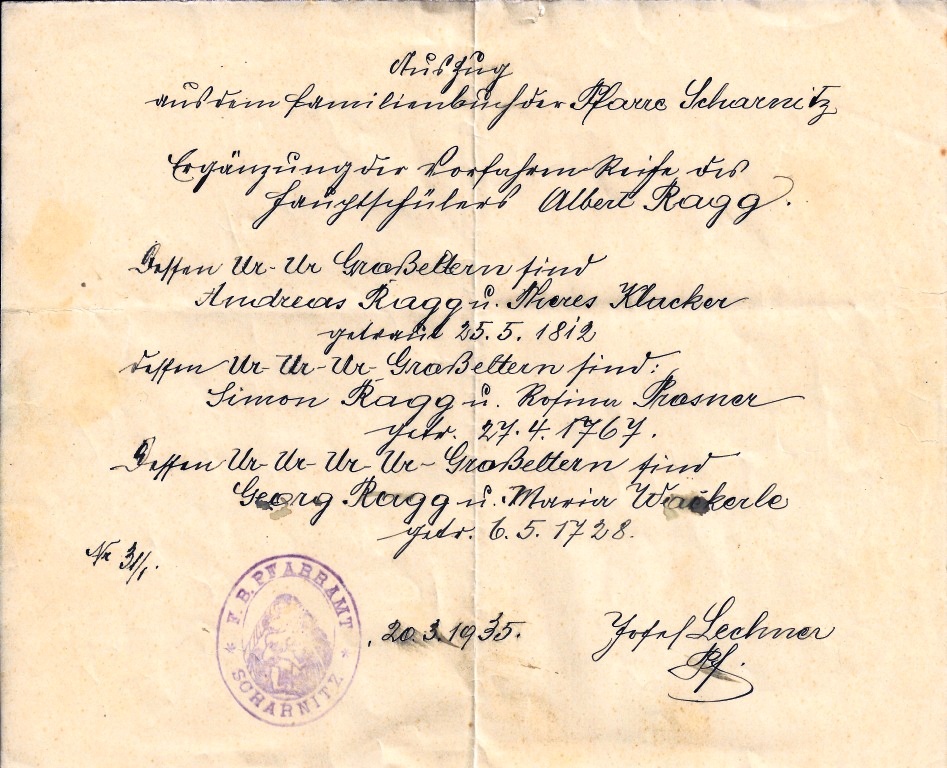 Auszug
aus dem Familienbuch der Pfarre Scharnitz
Ergänzung der Vorfahren Reihe des
Hauptschülers Albert Ragg.
Dessen Ur-Ur Großeltern sind
Andreas Ragg u. Theres Klacker
getraut 25.5.1812
dessen Ur-Ur-Ur-Großeltern sind:
Simon Ragg u. Rosina
getr. 27.4.1767.
Dessen Ur-Ur-Ur-Ur-Großeltern sind
Georg Ragg u. Maria Wackerle
getr. 6.5.1728.
Nr 31/1.
F. B. PFARRAMT
* SCHARNITZ *
20.3.1935.
Josef Lechner
Pf.